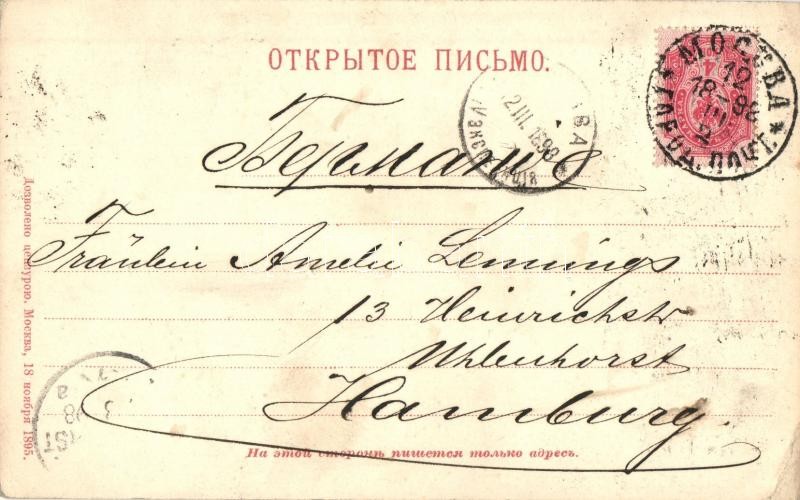 ОТКРЫТОЕ ПИСЬМО.
МОСКВА
12
III
1898
Fräulein Amelie Lemmings
13 Heinrichstr
Uhlenhorst
Hamburg.
На этой сторонѣ пишется только адресъ.
Дозволено цензурою. Москва, 18 ноября 1895.